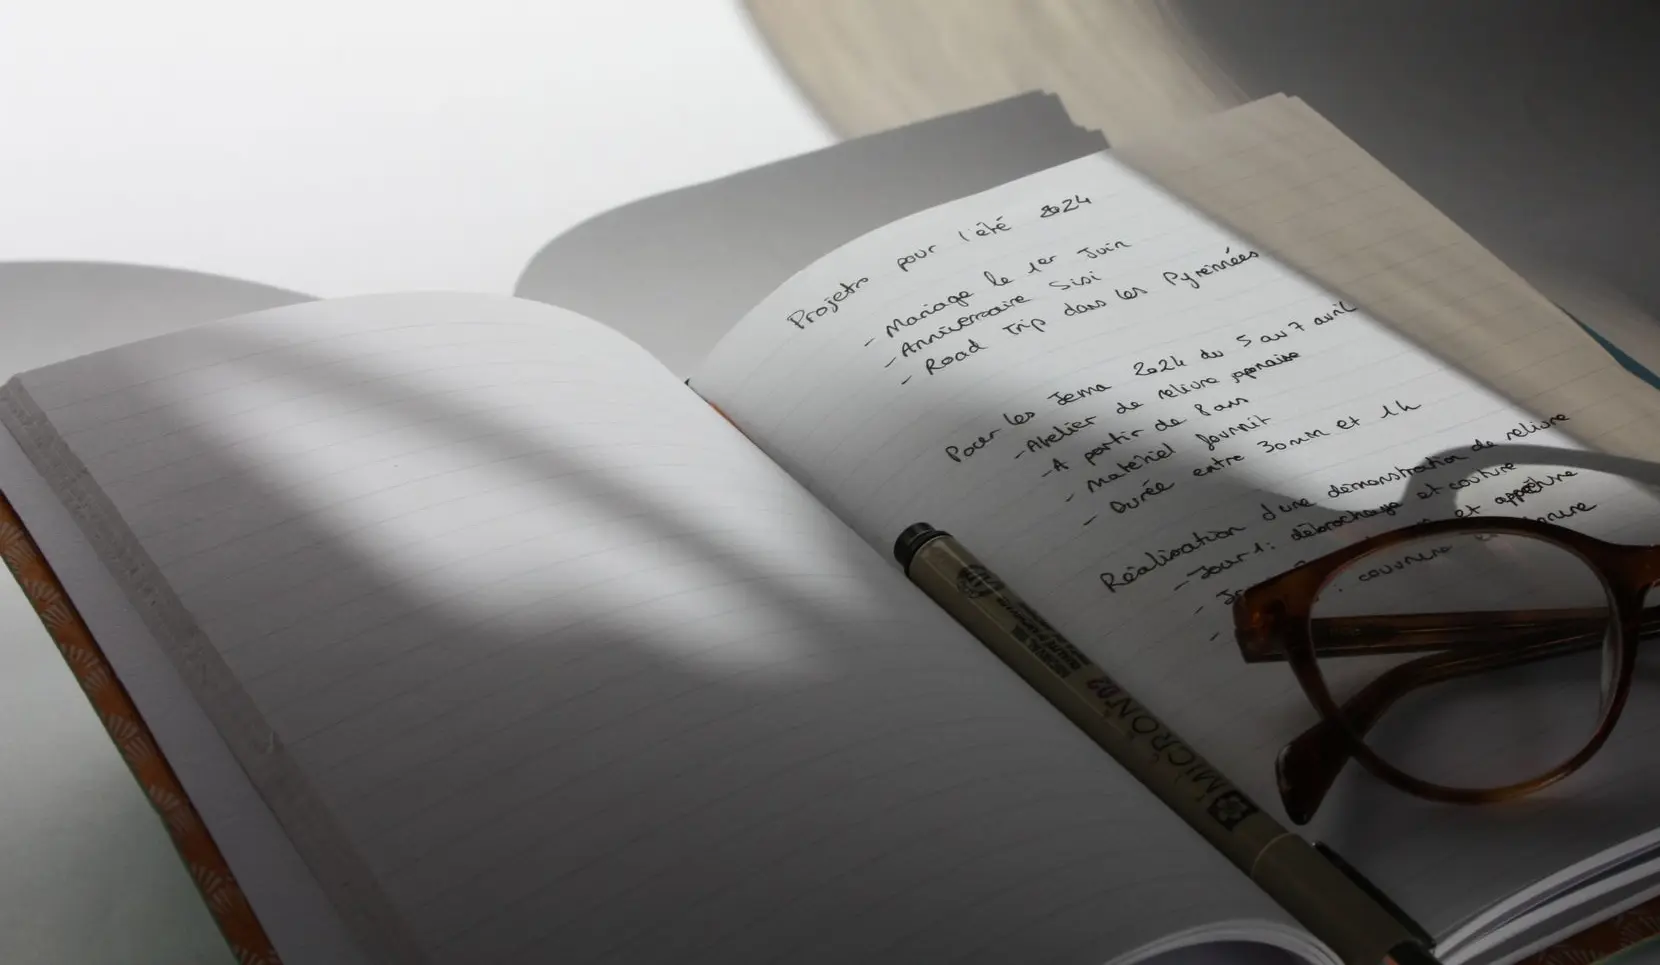 Projets pour l'été 2024
- Mariage le 1er Juin
- Anniversaire Sisi
- Road Trip dans les Pyrennées
Pour les Jema 2024 du 5 au 7 avril
- Atelier de reliure japonaise
- A partir de 8 ans
- Matériel fournit
- Durée entre 30 min et 1h
Réalisation d'une démonstration de reliure
- Jour 1: débrochage et couture
- et apprêture
- : couvrure
MICRON 02